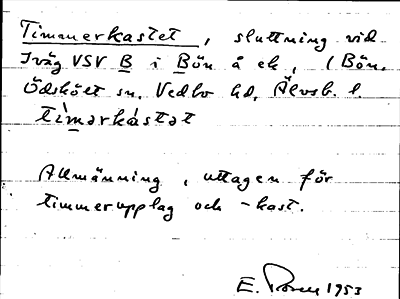 Timmerkastet, sluttning vid
Iväg VSV B i Bön å ek, (Bön,
Ödskölt sn, Vedbo hd, Älvsb. l.
tìmərkástət
Allmänning, uttagen för
timmerupplag och -kast.
E. 1953